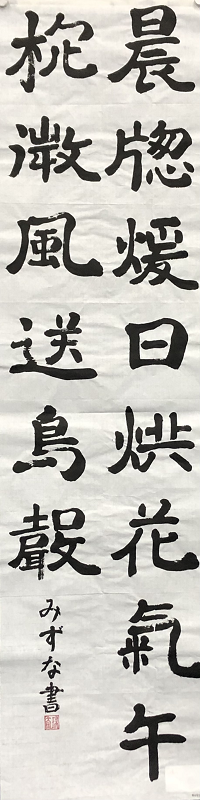 晨牎煖日烘花氣午
枕微風送鳥聲
みずな書